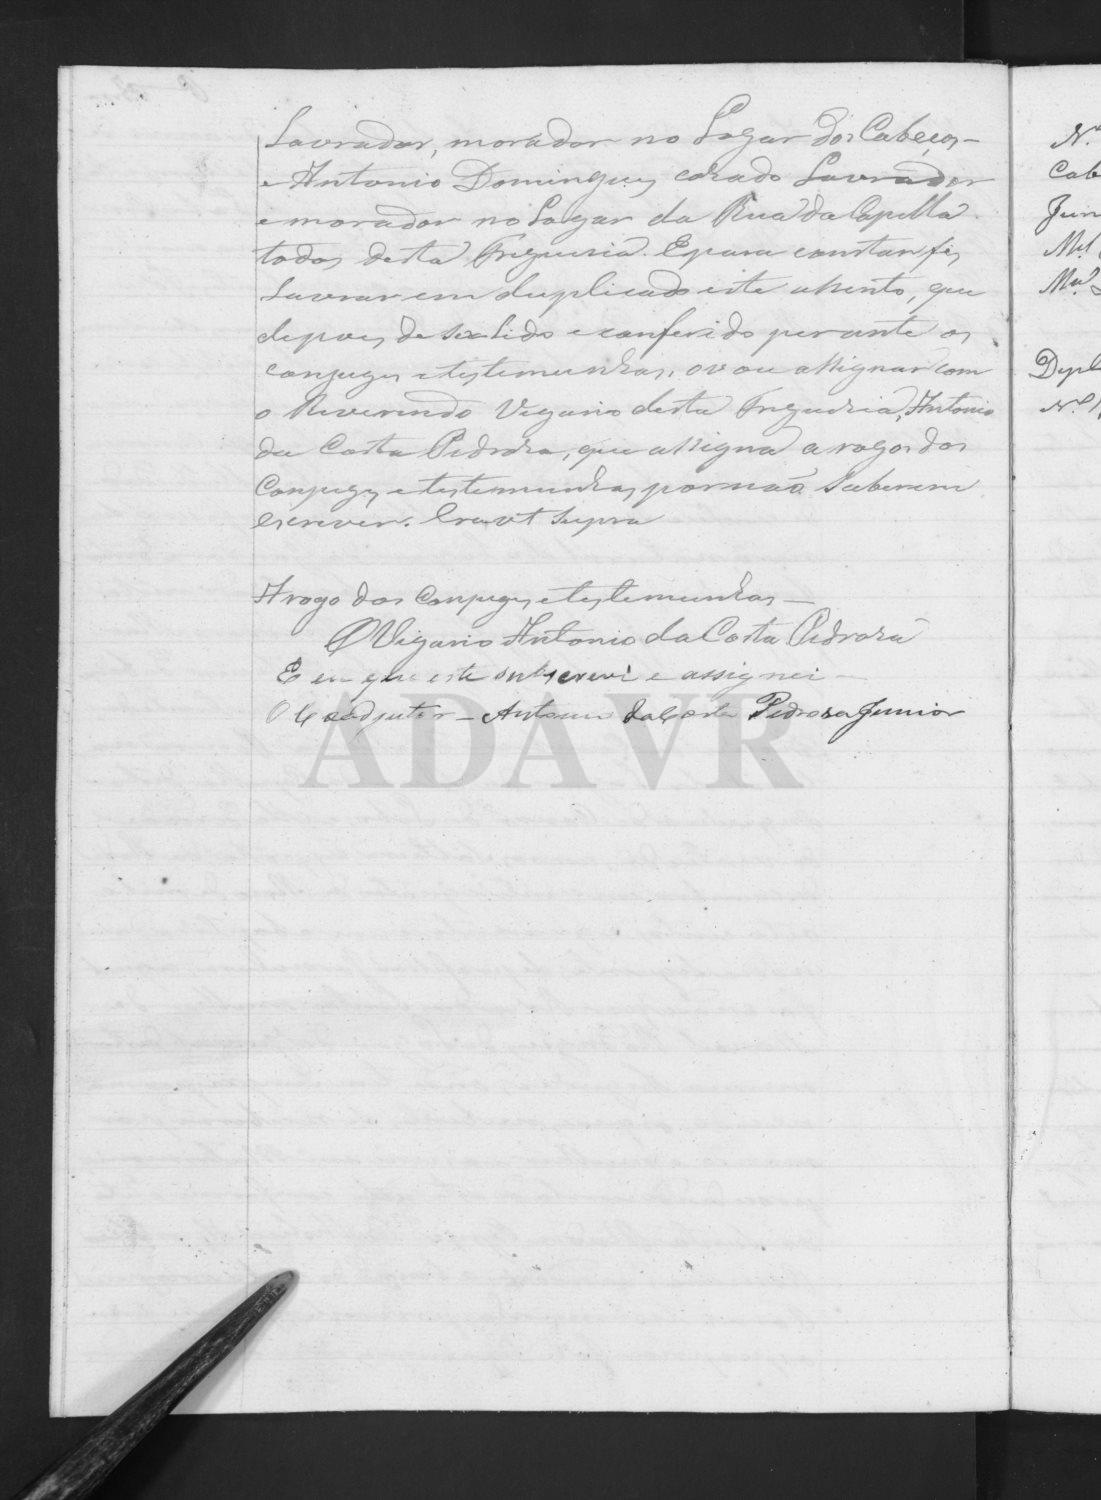 Lavrador, morador no Logar dos Cabeços –
e Antonio Domingues, casado Lavrador
e morador no Logar da Rua da Capella
todos desta Freguesia. E para constar fis
Lavrar em duplicado este assento, que
depois de ser lido e conferido perante os
conjuges e testemunhas, o vou assignar com
o Reverendo Vigario desta Freguezia, Antonio
da Costa Pedroza, que assigna a rogo dos
Conjuges e testemunhas por não saberem
escrever. Era ut supra
A rogo dos Conjuges e testemunhas –
O Vigario Antonio da Costa Pedroza
E eu que este subscrevi e assignei –
O Coadjutor – Antonio da Costa Pedroza Junior
ADAVR
N.º
Cab
Jun
Ml.
Ml.
Dupl
N.º 1